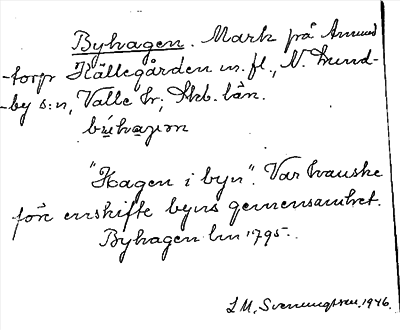 Byhagen. Mark på Amund
-torps Källegården m. fl., N. Lund-
-by s:n, Valle hr; Skb. län.
bẏhaꞬen
"Hagen i byn". Var kanske
före enskifte byns gemensamhet.
Byhagen lm 1795.
L M. Svenungsson. 1946.